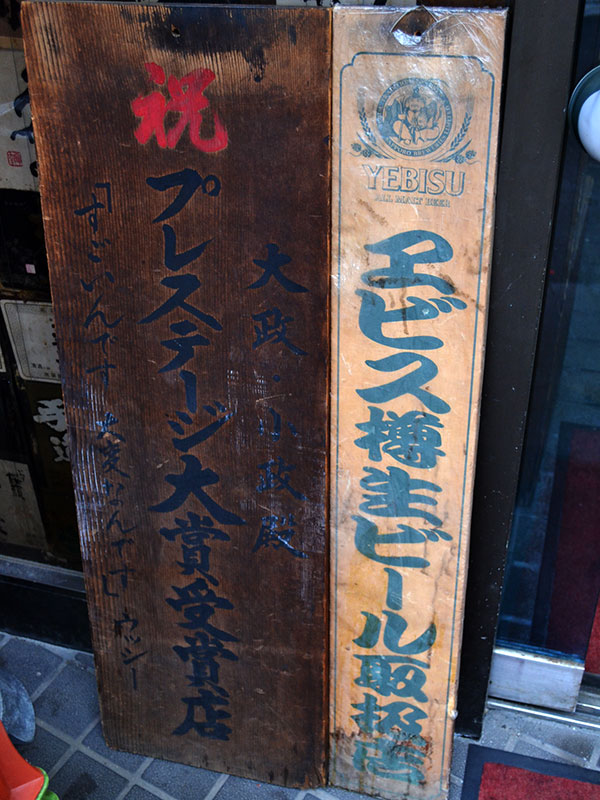 YEBISU
ALL MALT BEER
ヱビス樽生ビール取扱店
大政・小政殿
祝
プレステージ大賞受賞店
「すごいんです 大変なんです」ウッシー
手造